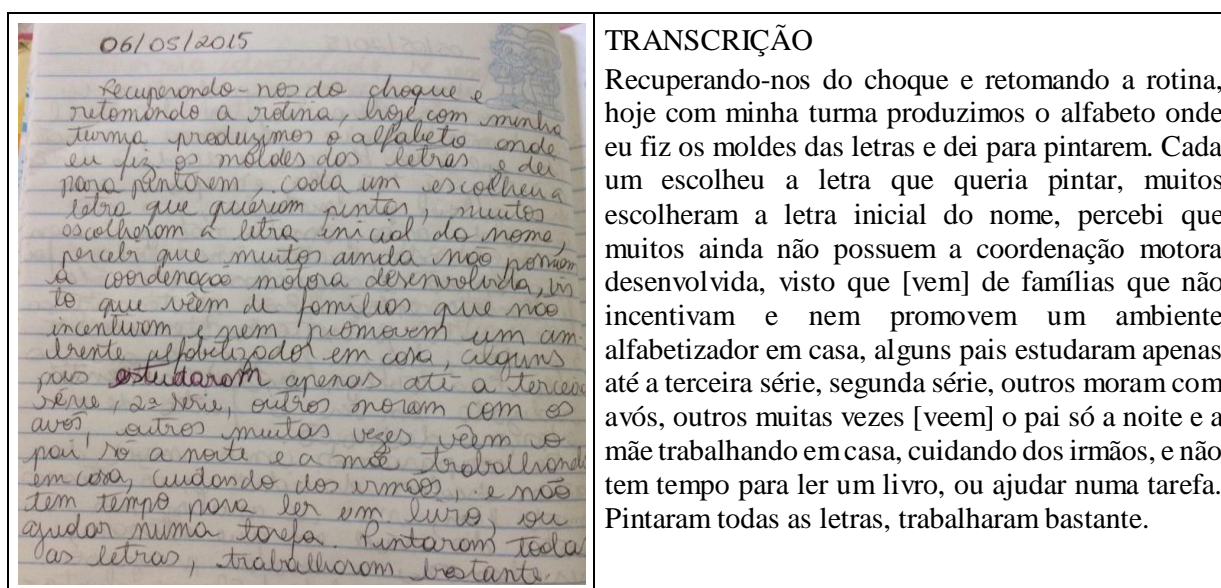 06/05/2015
Recuperando-nos do choque e
retomando a rotina, hoje com minha
turma produzimos o alfabeto onde
eu fiz os moldes das letras e dei
para pintarem, cada um escolheu a
letra que queriam pintar, muitos
escolheram a letra inicial do nome,
percebi que muitos ainda não possuem
a coordenação motora desenvolvida, vis
to que vêem de famílias que não
incentivam e nem promovem um am-
biente alfabetizador em casa, alguns
pais estudaram apenas até a terceira
série, 2ª série, outros moram com os
avós, outros muitas vezes vêem o
pai só a noite e a mãe trabalhando
em casa, cuidando dos irmãos, e não
tem tempo para ler um livro, ou
ajudar numa tarefa. Pintaram todas
as letras, trabalharam bastante.
TRANSCRIÇÃO
Recuperando-nos do choque e retomando a rotina,
hoje com minha turma produzimos o alfabeto onde
eu fiz os moldes das letras e dei para pintarem. Cada
um escolheu a letra que queria pintar, muitos
escolheram a letra inicial do nome, percebi que
muitos ainda não possuem a coordenação motora
desenvolvida, visto que [vem] de famílias que não
incentivam e nem promovem um ambiente
alfabetizador em casa, alguns pais estudaram apenas
até a terceira série, segunda série, outros moram com
avós, outros muitas vezes [veem] o pai só a noite e a
mãe trabalhando em casa, cuidando dos irmãos, e não
tem tempo para ler um livro, ou ajudar numa tarefa.
Pintaram todas as letras, trabalharam bastante.